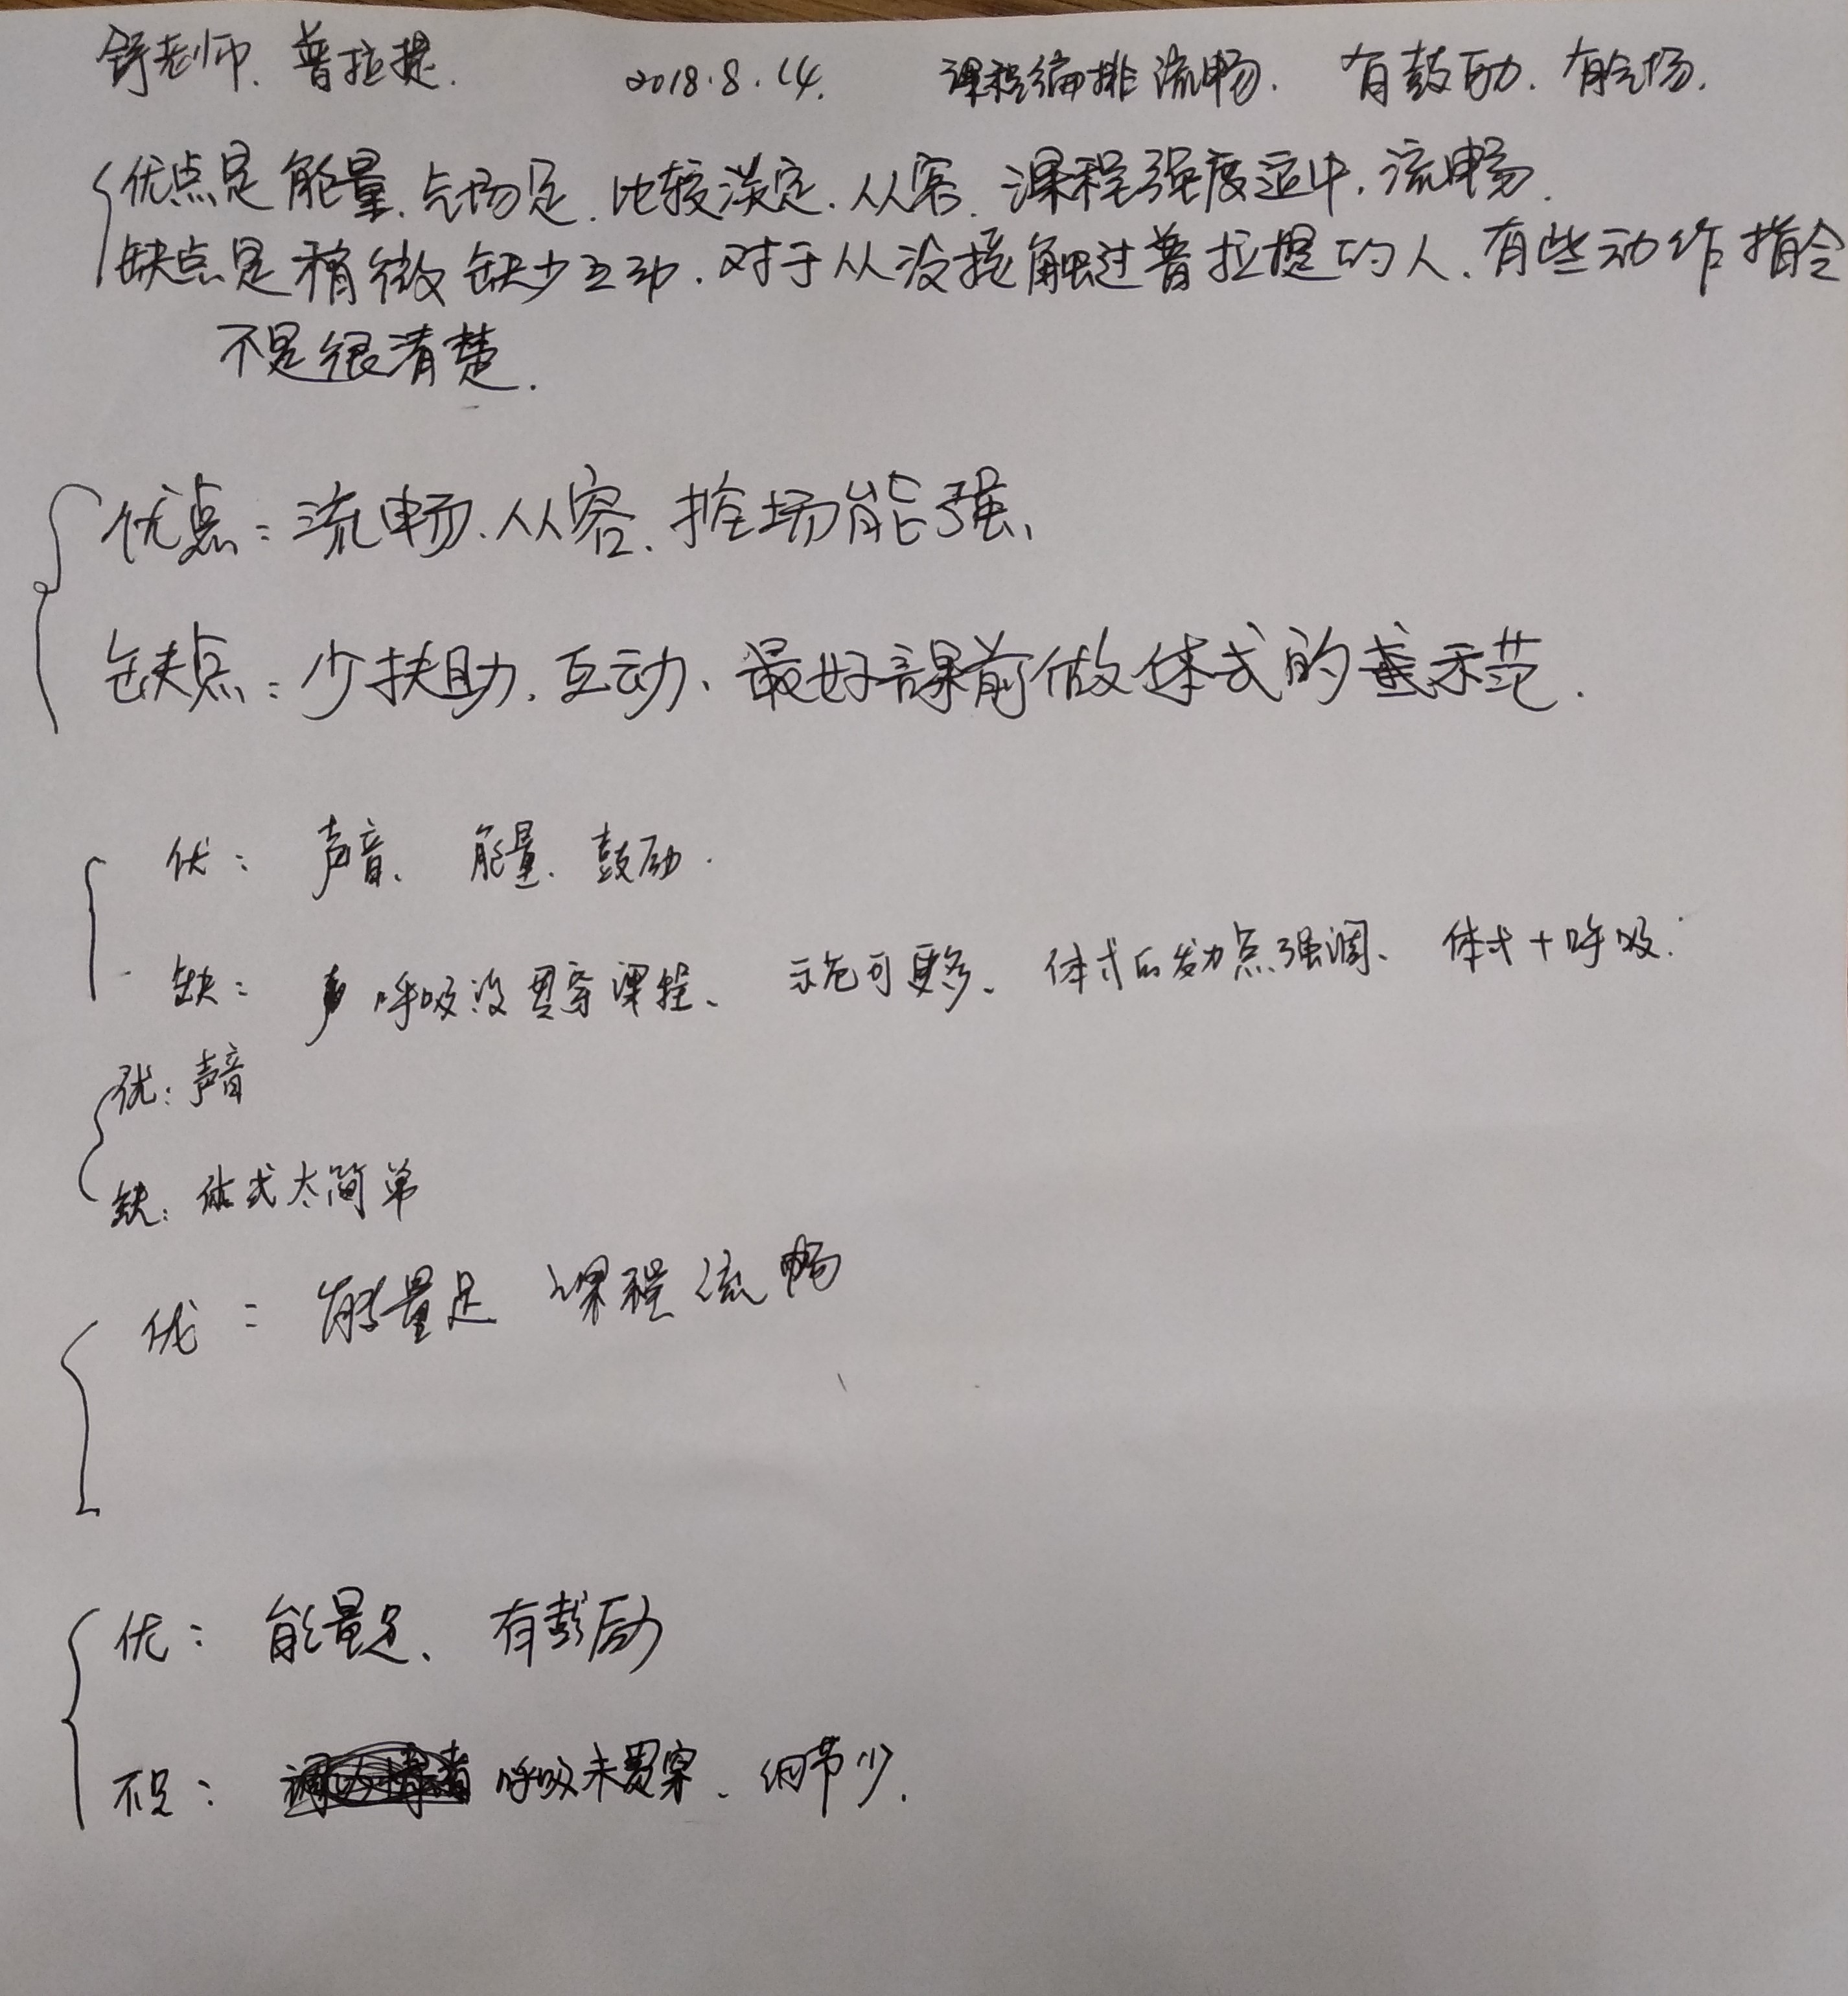 舒老师、普拉提. 2018.8.14. 课程编排流畅. 有鼓励. 有气场.
优点是能量、气场足. 比较淡定. 从容. 课程强度适中. 流畅.
缺点是稍微缺少互动. 对于从没接触过普拉提的人. 有些动作指令
不是很清楚.
优点: 流畅. 从容. 控场能强、
缺点: 少扶助. 互动、最好课前做体式的示范.
优: 声音、能量、鼓励.
缺: 呼吸没贯穿课程、示范可更多、体式后发力点强调、体式+呼吸.
优: 声音
缺: 体式太简单
优: 能量足 课程流畅
优: 能量足、有鼓励
不足: 呼吸未贯穿、细节少.